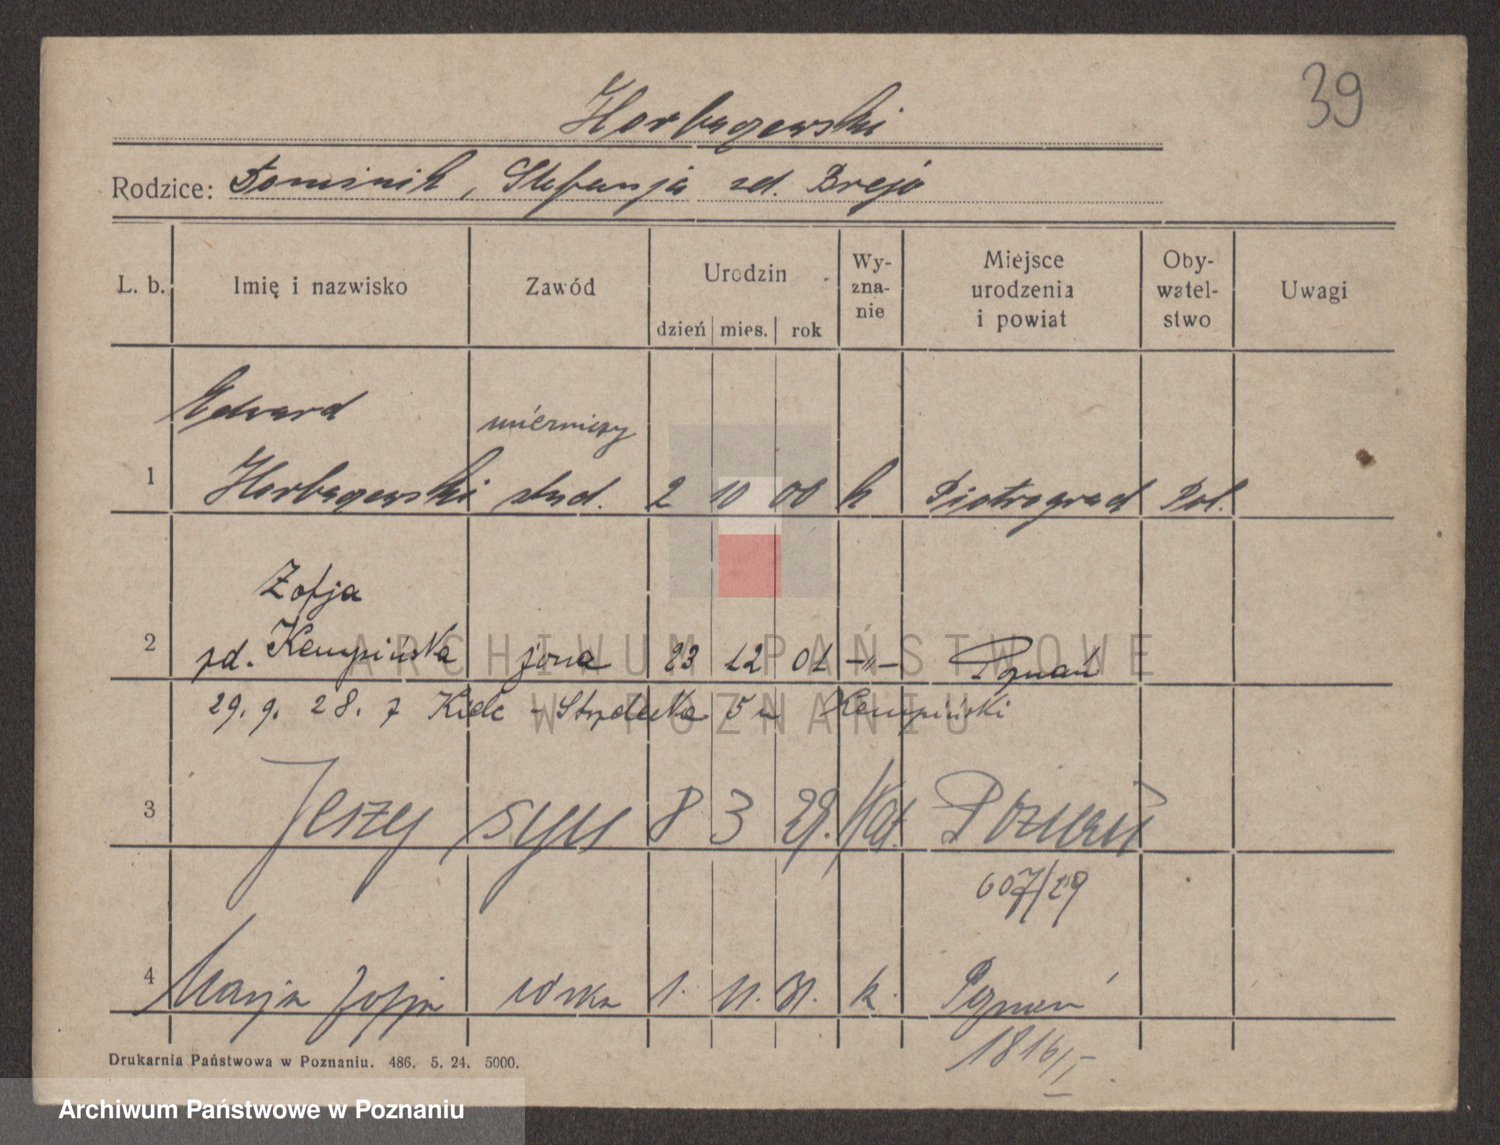 39
Horbaczewski
Rodzice: Dominik, Stefanja zd. Brejó
L. b. Imię i nazwisko Zawód Urodzin dzień mies. rok Wy-zna-nie Miejsce urodzenia i powiat Oby-watel-stwo Uwagi
Edward mierniczy
1 Horbaczewski stud. 2 10 00 k Piotrograd Pol.
Zofja
2 zd. Kempińska żona 23 12 01 -"- Poznań
29. 9. 28. z Strzelecka 5 u Kempiński
3 Jerzy syn 8 3 29. kat. Poznań
607/29
4 Marja Zofja córka 1. 11. 31. k. Poznań
1816/I
Drukarnia Państwowa w Poznaniu. 486. 5. 24. 5000.
ARCHIWUM PAŃSTWOWE
W POZNANIU
Archiwum Państwowe w Poznaniu